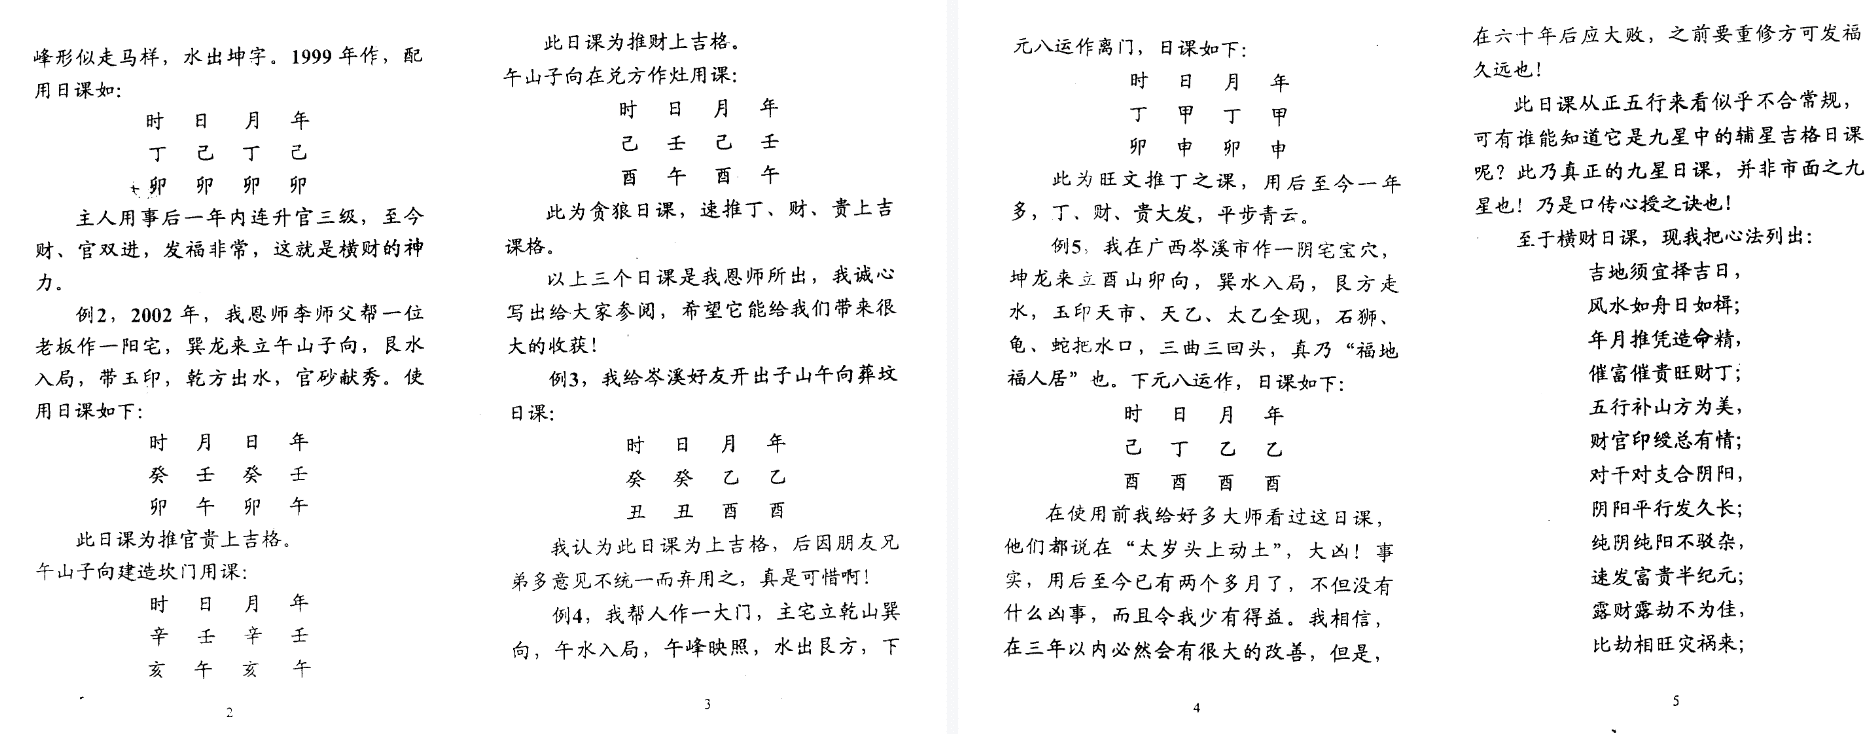 峰形似走马样，水出坤字。1999年作，配
用日课如：
时 日 月 年
丁 己 丁 己
卯 卯 卯 卯
主人用事后一年内连升官三级，至今
财、官双进，发福非常，这就是横财的神
力。
例2，2002年，我恩师李师父帮一位
老板作一阳宅，巽龙来立午山子向，艮水
入局，带玉印，乾方出水，官砂献秀。使
用日课如下：
时 月 日 年
癸 壬 癸 壬
卯 午 卯 午
此日课为推官贵上吉格。
午山子向建造坎门用课：
时 日 月 年
辛 壬 辛 壬
亥 午 亥 午
2
此日课为推财上吉格。
午山子向在兑方作灶用课：
时 日 月 年
己 壬 己 壬
酉 午 酉 午
此为贪狼日课，速推丁、财、贵上吉
课格。
以上三个日课是我恩师所出，我诚心
写出给大家参阅，希望它能给我们带来很
大的收获！
例3，我给岑溪好友开出子山午向葬坟
日课：
时 日 月 年
癸 癸 乙 乙
丑 丑 酉 酉
我认为此日课为上吉格，后因朋友兄
弟多意见不统一而弃用之，真是可惜啊！
例4，我帮人作一大门，主宅立乾山巽
向，午水入局，午峰映照，水出艮方，下
3
元八运作离门，日课如下：
时 日 月 年
丁 甲 丁 甲
卯 申 卯 申
此为旺文推丁之课，用后至今一年
多，丁、财、贵大发，平步青云。
例5，我在广西岑溪市作一阴宅宝穴，
坤龙来立酉山卯向，巽水入局，艮方走
水，玉印天市、天乙、太乙全现，石狮、
龟、蛇把水口，三曲三回头，真乃“福地
福人居”也。下元八运作，日课如下：
时 日 月 年
己 丁 乙 乙
酉 酉 酉 酉
在使用前我给好多大师看过这日课，
他们都说在“太岁头上动土”，大凶！事
实，用后至今已有两个多月了，不但没有
什么凶事，而且令我少有得益。我相信，
在三年以内必然会有很大的改善，但是，
4
在六十年后应大败，之前要重修方可发福
久远也！
此日课从正五行来看似乎不合常规，
可有谁能知道它是九星中的辅星吉格日课
呢？此乃真正的九星日课，并非市面之九
星也！乃是口传心授之诀也！
至于横财日课，现我把心法列出：
吉地须宜择吉日，
风水如舟日如楫；
年月推凭造命精，
催富催贵旺财丁；
五行补山方为美，
财官印绶总有情；
对干对支合阴阳，
阴阳平行发久长；
纯阴纯阳不驳杂，
速发富贵半纪元；
露财露劫不为佳，
比劫相旺灾祸来；
5